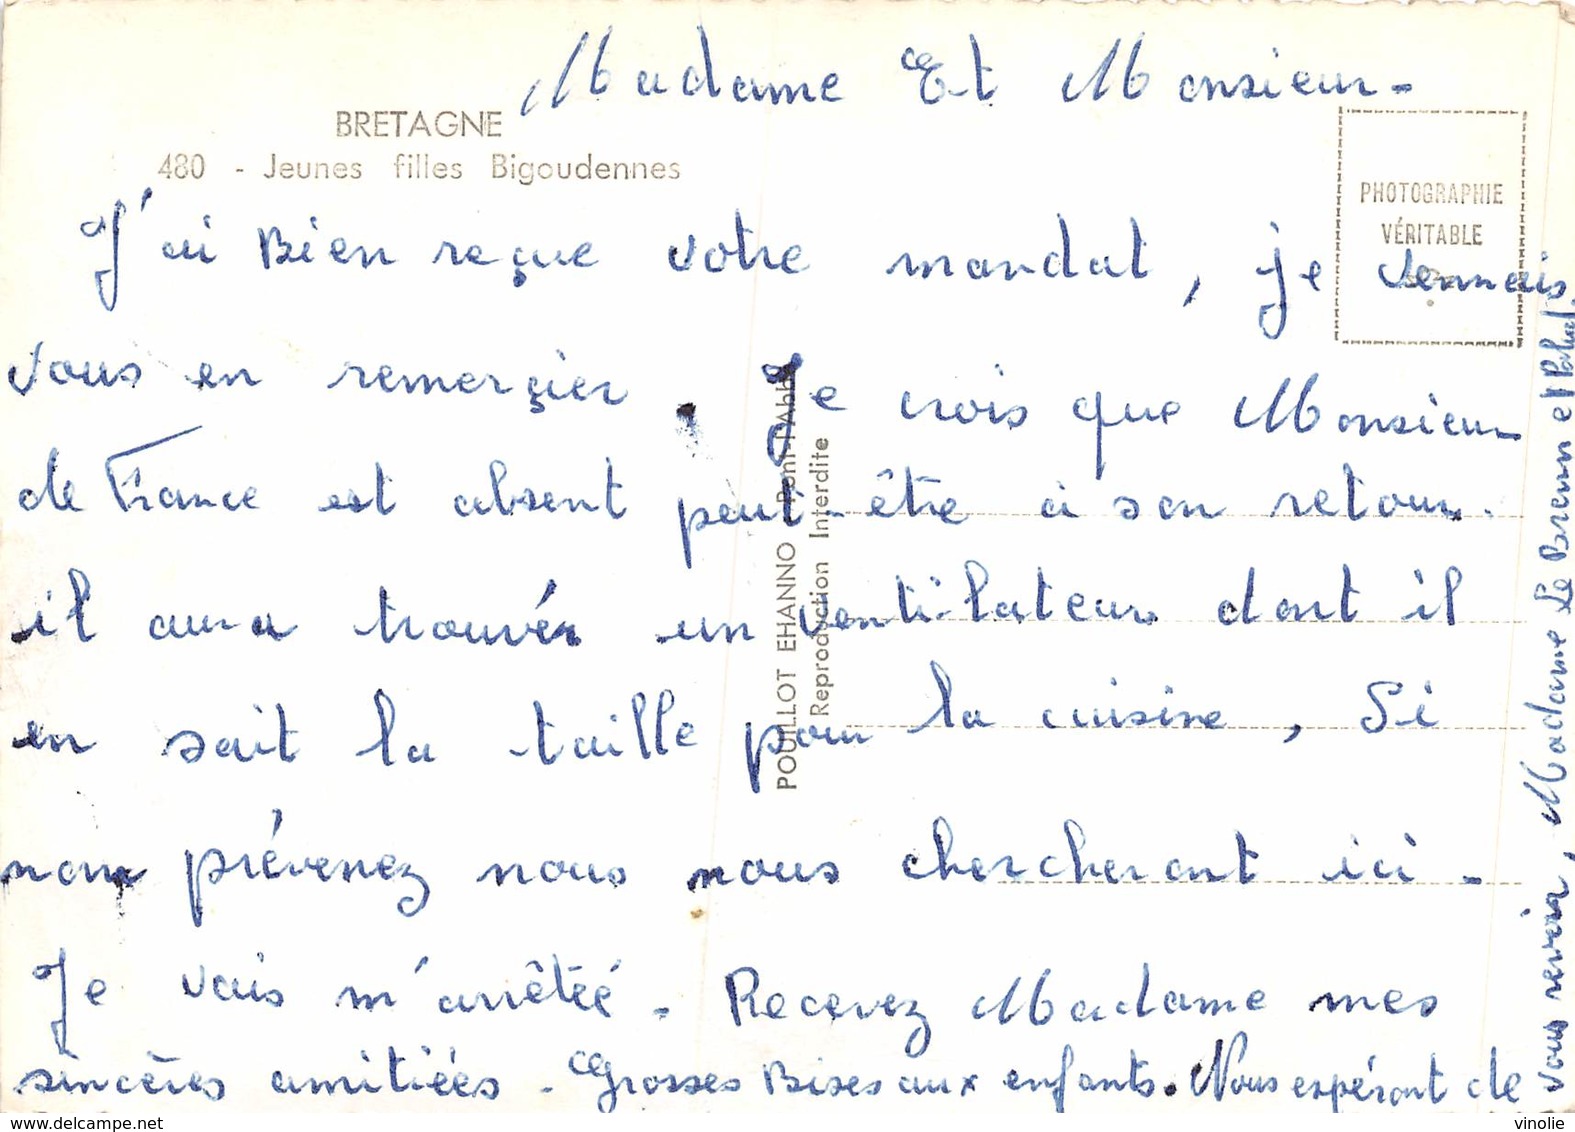 Madame Et Monsieur-
BRETAGNE
480 - Jeunes filles Bigoudennes
PHOTOGRAPHIE
VÉRITABLE
J'ai Bien reçue votre mandat, je vennais
vous en remerçier. Je crois que Monsieur
de France est absent peut-être a son retour.
il aura trouvér un ventilateur dont il
en sait la taille pour la cuisine, Si
non prévenez nous nous chercheront ici -
Je vais m'arrêtéé - Recevez Madame mes
sincères amitiées - Grosses Bises aux enfants. Nous espéront de
vous revoir, Madame Le Brenn et
POUILLOT EHANNO Pont-l'Abbé
Reproduction Interdite
delcampe.net
vinolie